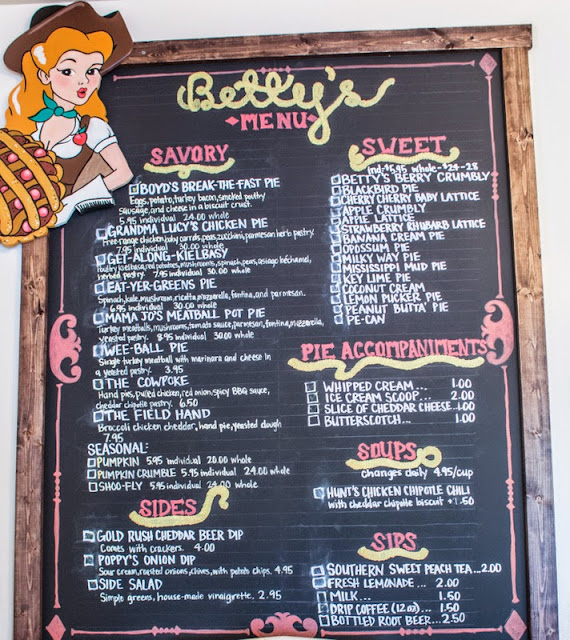 Betty's
MENU
SAVORY
BOYD'S BREAK-THE-FAST PIE
Eggs, potato, turkey bacon, smoked patty
sausage, and cheese in a biscuit crust.
5.95 individual 24.00 whole
GRANDMA LUCY'S CHICKEN PIE
Free-range chicken, baby carrots, peas, zucchini, parmesan herb pastry.
7.95 individual 30.00 whole
GET-ALONG-KIELBASY
Poultry kielbasa, red potatoes, mushrooms, spinach, peas, asiago béchamel,
herbed pastry. 7.95 individual 30.00 whole
EAT-YER-GREENS PIE
Spinach, kale, mushroom, ricotta, mozzarella, fontina, and parmesan.
6.95 individual 30.00 whole
MAMA JO'S MEATBALL POT PIE
Turkey meatballs, mushrooms, tomato sauce, parmesan, fontina, mozzarella,
yeasted pastry. 8.95 individual 30.00 whole
WEE-BALL PIE
Single turkey meatball with marinara and cheese in
a yeasted pastry. 3.95
THE COWPOKE
Hand pies, pulled chicken, red onion, spicy BBQ sauce,
cheddar chipotle pastry. 6.50
THE FIELD HAND
Broccoli chicken cheddar, hand pie, yeasted dough
7.95
SEASONAL:
PUMPKIN 5.95 individual 20.00 whole
PUMPKIN CRUMBLE 5.95 individual 24.00 whole
SHOO-FLY 5.95 individual 24.00 whole
SIDES
GOLD RUSH CHEDDAR BEER DIP
Comes with crackers. 4.00
POPPY'S ONION DIP
Sour cream, roasted onions, chives, with potato chips. 4.95
SIDE SALAD
Simple greens, house-made vinaigrette. 2.95
SWEET
ind-$5.95 whole-$24-28
BETTY'S BERRY CRUMBLY
BLACKBIRD PIE
CHERRY CHERRY BABY LATTICE
APPLE CRUMBLY
APPLE LATTICE
STRAWBERRY RHUBARB LATTICE
BANANA CREAM PIE
OPOSSUM PIE
MILKY WAY PIE
MISSISSIPPI MUD PIE
KEY LIME PIE
COCONUT CREAM
LEMON PUCKER PIE
PEANUT BUTTA' PIE
PE-CAN
PIE ACCOMPANIMENTS
WHIPPED CREAM... 1.00
ICE CREAM SCOOP... 2.00
SLICE OF CHEDDAR CHEESE..1.00
BUTTERSCOTCH... 1.00
SOUPS
changes daily 4.95/cup
HUNT'S CHICKEN CHIPOTLE CHILI
with cheddar chipotle biscuit +1.50
SIPS
SOUTHERN SWEET PEACH TEA...2.00
FRESH LEMONADE... 2.00
MILK... 1.50
DRIP COFFEE (12 oz)... 1.50
BOTTLED ROOT BEER...2.50